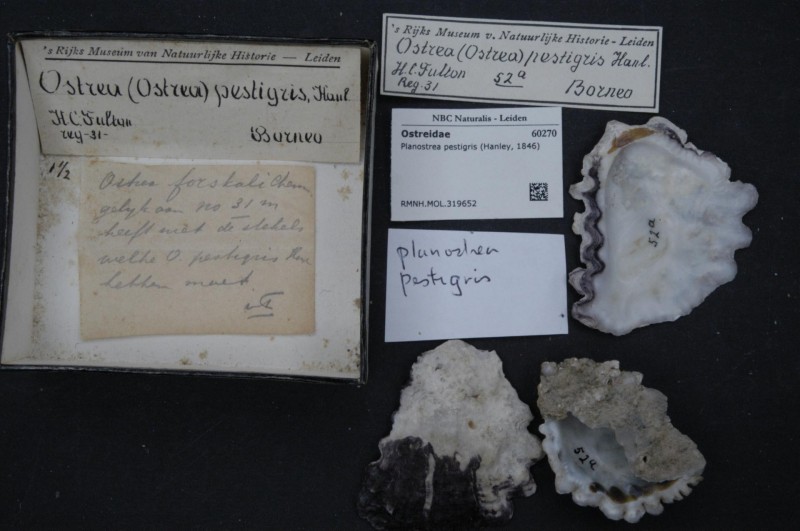 's Rijks Museum van Natuurlijke Historie — Leiden
Ostrea (Ostrea) pestigris, Hanl.
H.C. Fulton
reg-31-
Borneo
1½
Ostrea forskali Chem
gelijk aan no 31 m
heeft niet de stekels
welke O. pestigris Han
hebben moet.
's Rijks Museum v. Natuurlijke Historie - Leiden
Ostrea (Ostrea) pestigris Hanl.
H.C. Fulton
52a
Reg. 31
Borneo
NBC Naturalis - Leiden
Ostreidae 60270
Planostrea pestigris (Hanley, 1846)
RMNH.MOL.319652
planostrea
pestigris
52a
52a